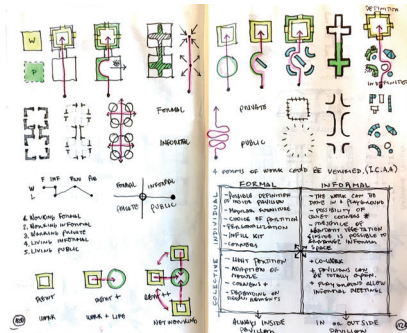 W
P
FORMAL
INFORMAL
F INF PRIV PUB
W
L
FORMAL INFORMAL
PRIVATE PUBLIC
1. WORKING FORMAL
2. WORKING INFORMAL
3. WORKING PRIVATE
4. LIVING INFORMAL
5. LIVING PUBLIC
POINT
POINT +
WORK
WORK + LIFE
NETWORKING
DEFINITION
PRIVATE
PUBLIC
4 POINTS OF WORK COULD BE VERIFIED.
FORMAL
INFORMAL
INDIVIDUAL
COLLECTIVE
- POSSIBLE DEFINITION OF INSIDE PAVILION
- MODULAR FURNITURE
- CHOICE OF PARTITION
- PERSONALIZATION
- INFILL KIT
- CORNERS
- THE WORK CAN BE
DONE IN A PLAYGROUND
- POSSIBILITY OF
QUIET CORNERS
VEGETATION
INSIDE IS POSSIBLE TO
ARRANGE INFORMAL
SPACE
- LIGHT PARTITION
- ADAPTION OF
MODULE
- DEPENDING ON
REQUIREMENTS
- CO-WORK
- PAVILIONS CAN BE
TOTALLY OPEN
- PLAYGROUND ALLOW
INFORMAL MEETING
ALWAYS INSIDE
PAVILION
IN OR OUTSIDE
PAVILION